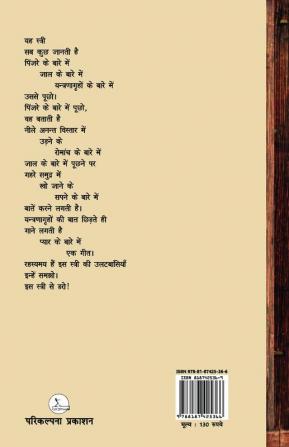 यह स्त्री
सब कुछ जानती है
पिंजरे के बारे में
जाल के बारे में
यन्त्रणागृहों के बारे में
उससे पूछो।
पिंजरे के बारे में पूछो,
वह बताती है
नीले अनन्त विस्तार में
उड़ने के
रोमांच के बारे में
जाल के बारे में पूछने पर
गहरे समुद्र में
खो जाने के
सपने के बारे में
बातें करने लगती है।
यन्त्रणागृहों की बात छिड़ते ही
गाने लगती है
प्यार के बारे में
एक गीत।
रहस्यमय हैं इस स्त्री की उलटबांसियाँ
इन्हें समझो।
इस स्त्री से डरो!
ISBN 978-81-87425-36-6
ISBN 818742536-9
9788187425366
परिकल्पना प्रकाशन
मूल्य : 130 रुपये